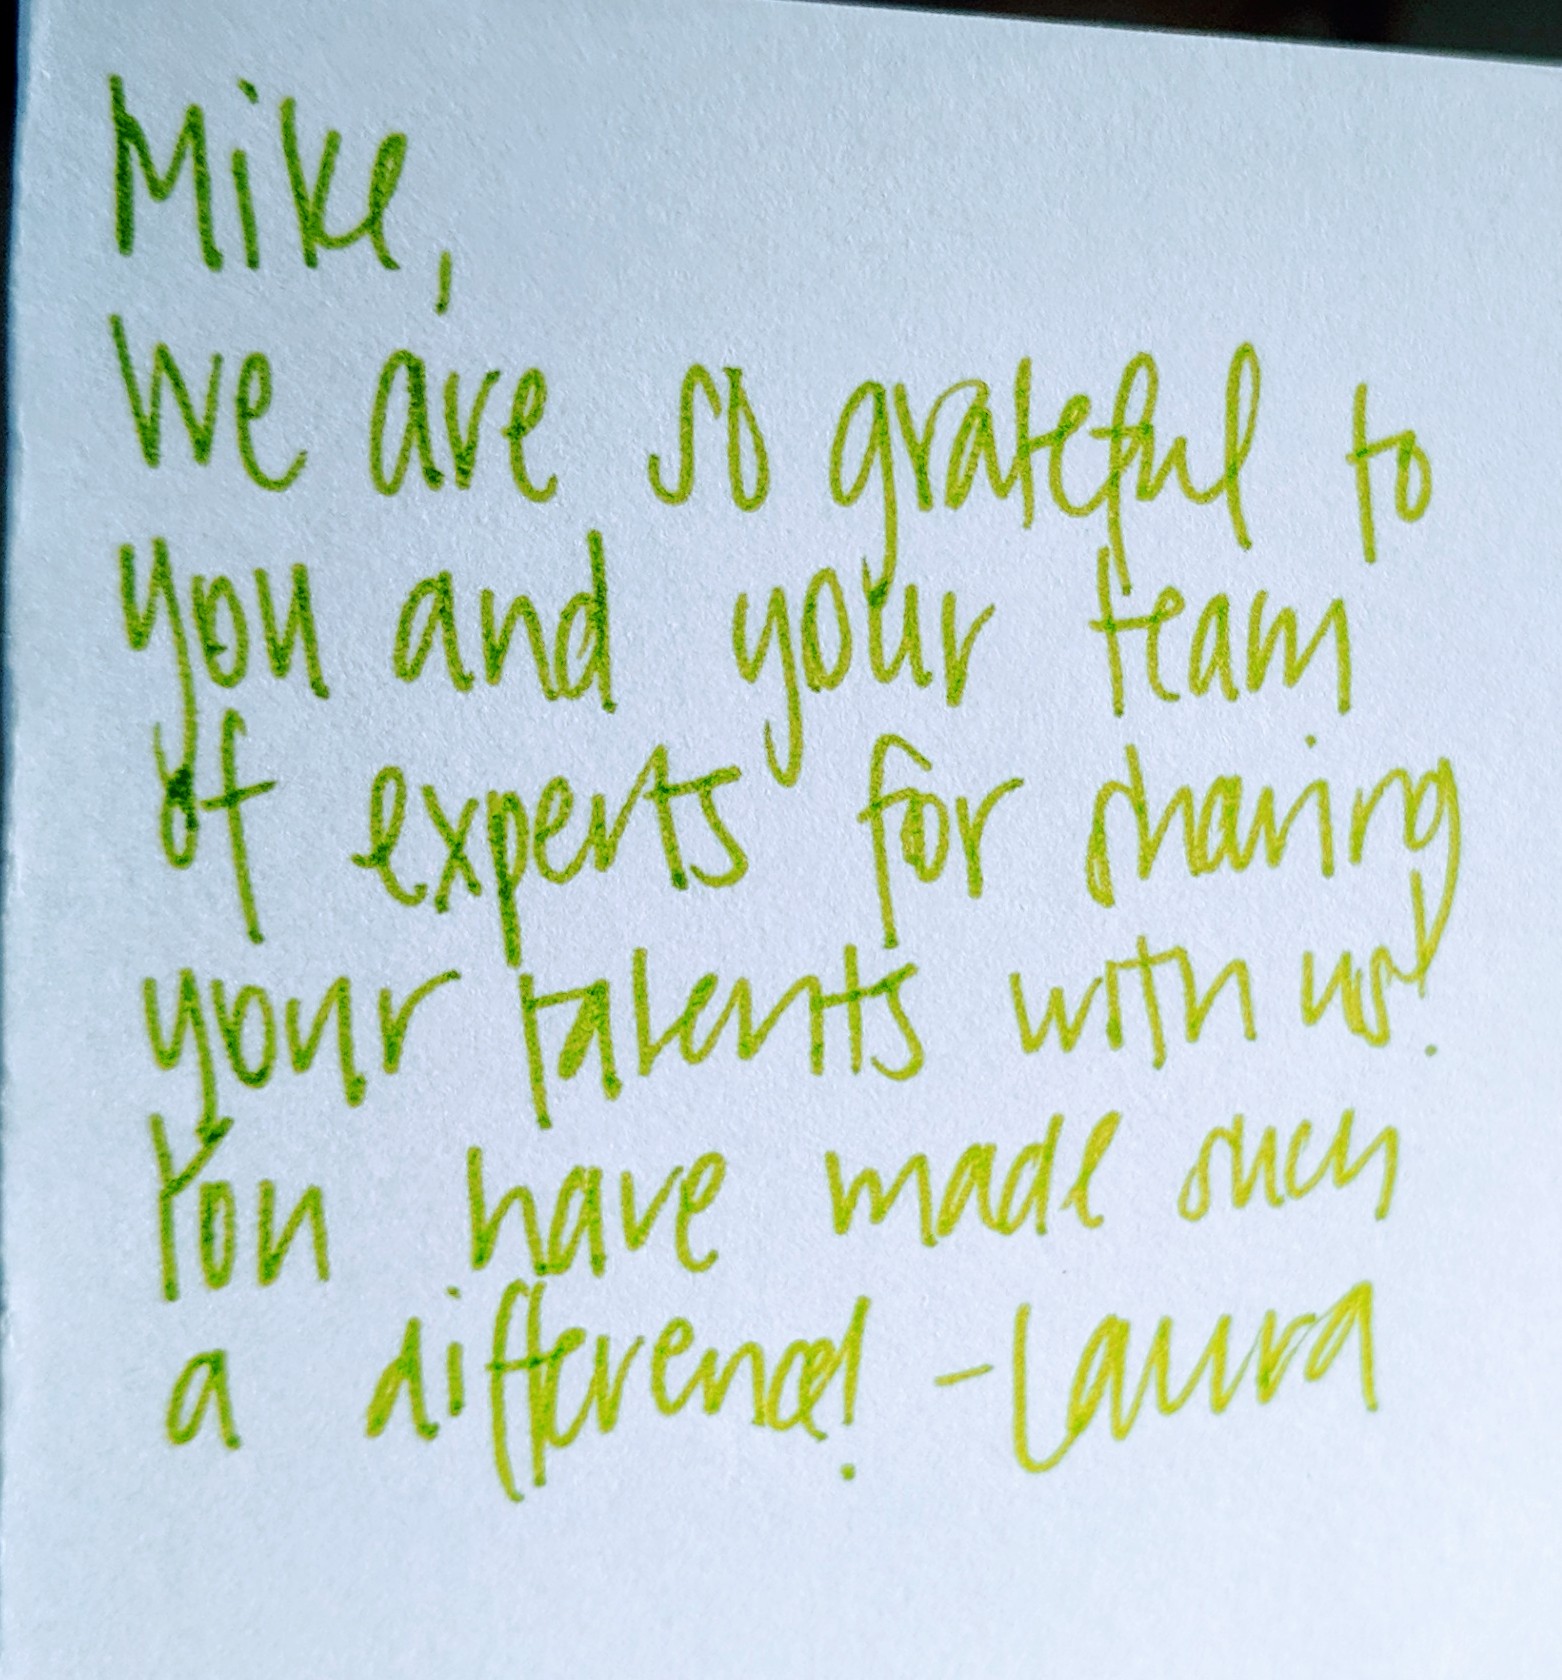 Mike,
We are so grateful to
you and your team
of experts for sharing
your talents with us!
You have made such
a difference! -Laura